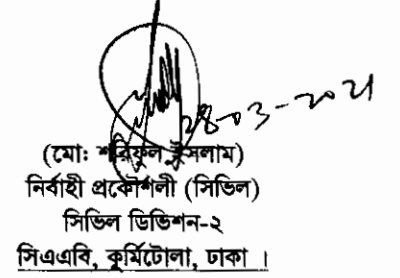 28-03-2021
(মোঃ শরিফুল ইসলাম)
নির্বাহী প্রকৌশলী (সিভিল)
সিভিল ডিভিশন-২
সিএএবি, কুর্মিটোলা, ঢাকা ।